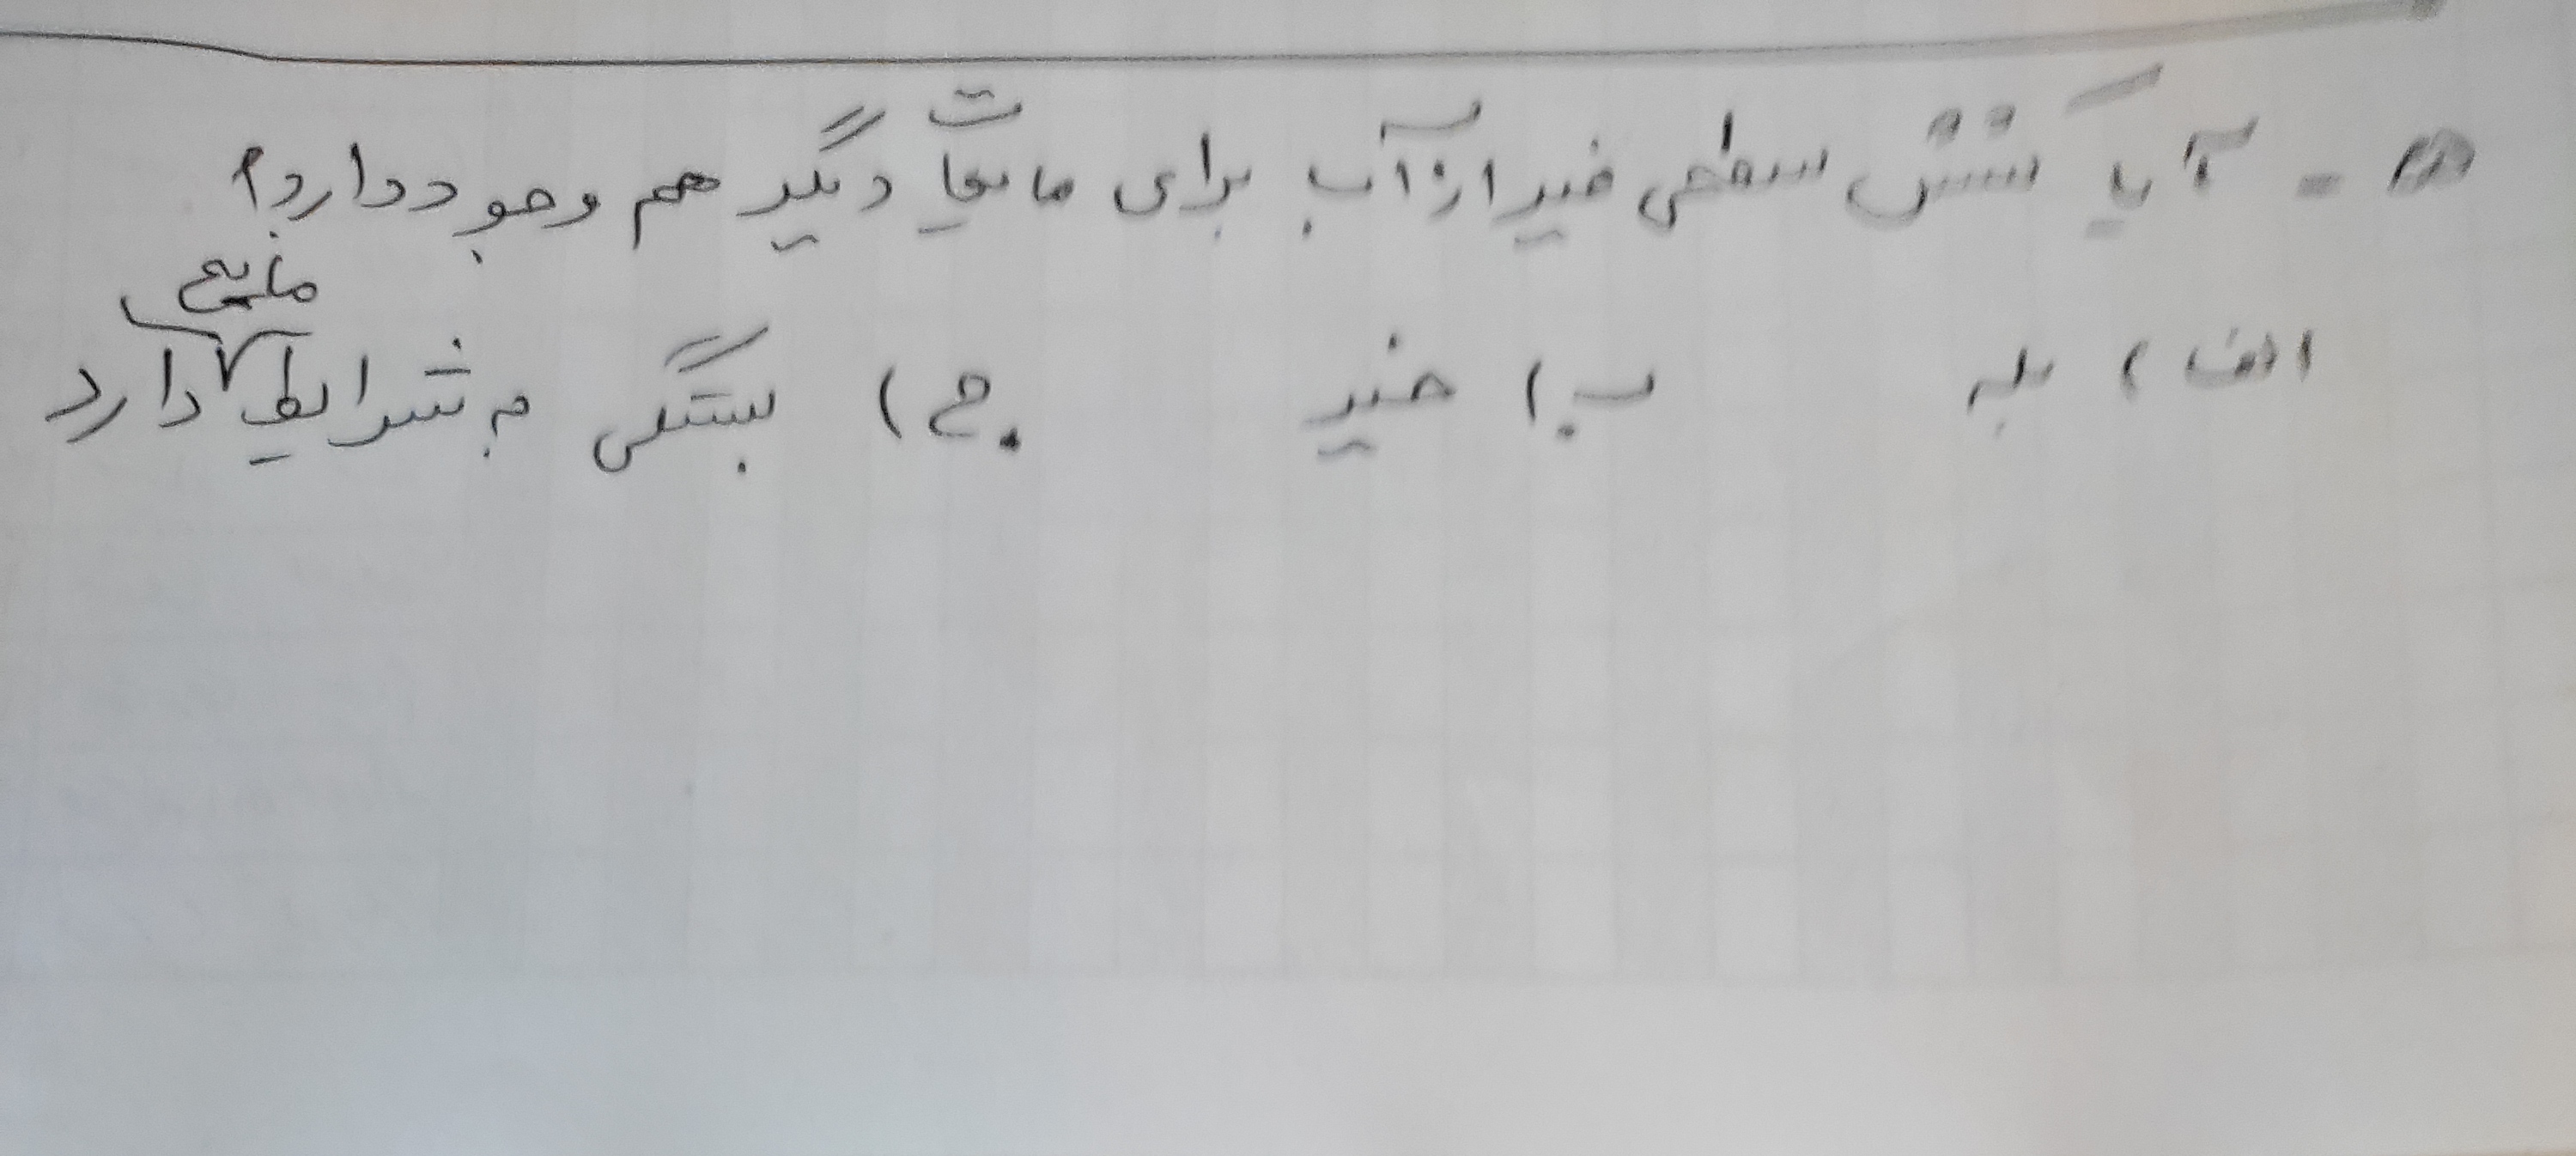 - آیا کشش سطحی غیر از آب برای مایعات دیگر هم وجود دارد؟
الف) بله ب) خیر ج) بستگی به شرایط مایع دارد